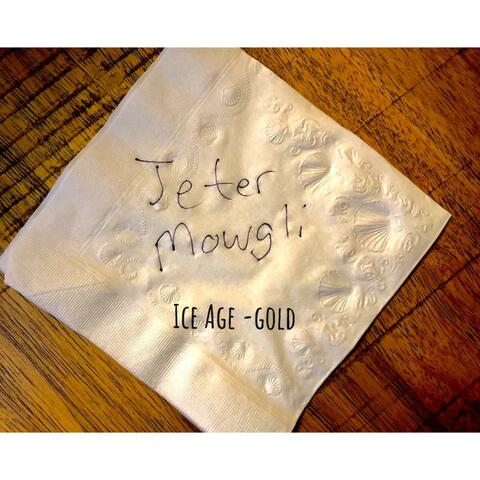 Jeter
Mowgli
ICE AGE -GOLD